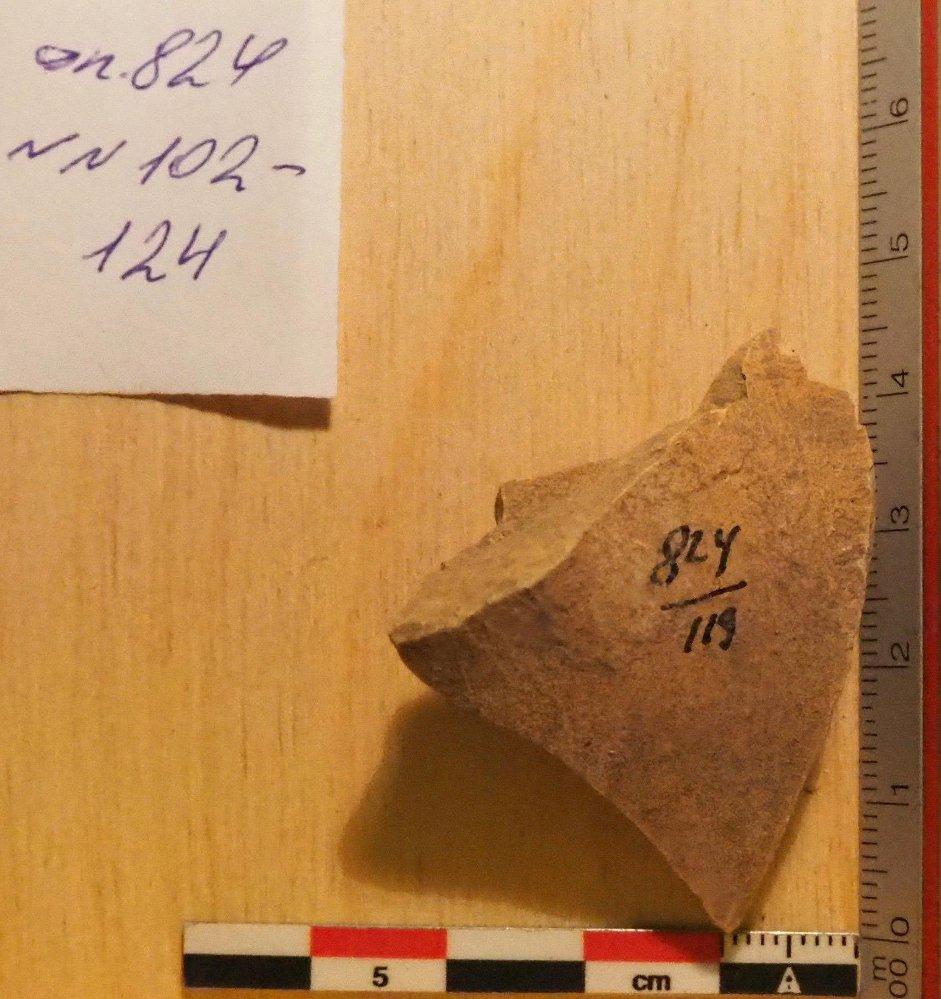 оп. 824
NN 102-
124
824
119
6
5
4
3
2
1
0
5
cm